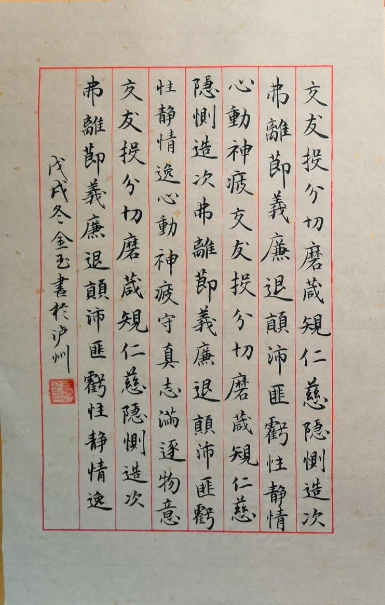 交友投分切磨箴規仁慈隱惻造次
弗離節義廉退顛沛匪虧性静情
心動神疲交友投分切磨箴規仁慈
隱惻造次弗離節義廉退顛沛匪虧
性静情逸心動神疲守真志滿逐物意
交友投分切磨箴規仁慈隱惻造次
弗離節義廉退顛沛匪虧性静情逸
戊戌冬金玉書於泸州